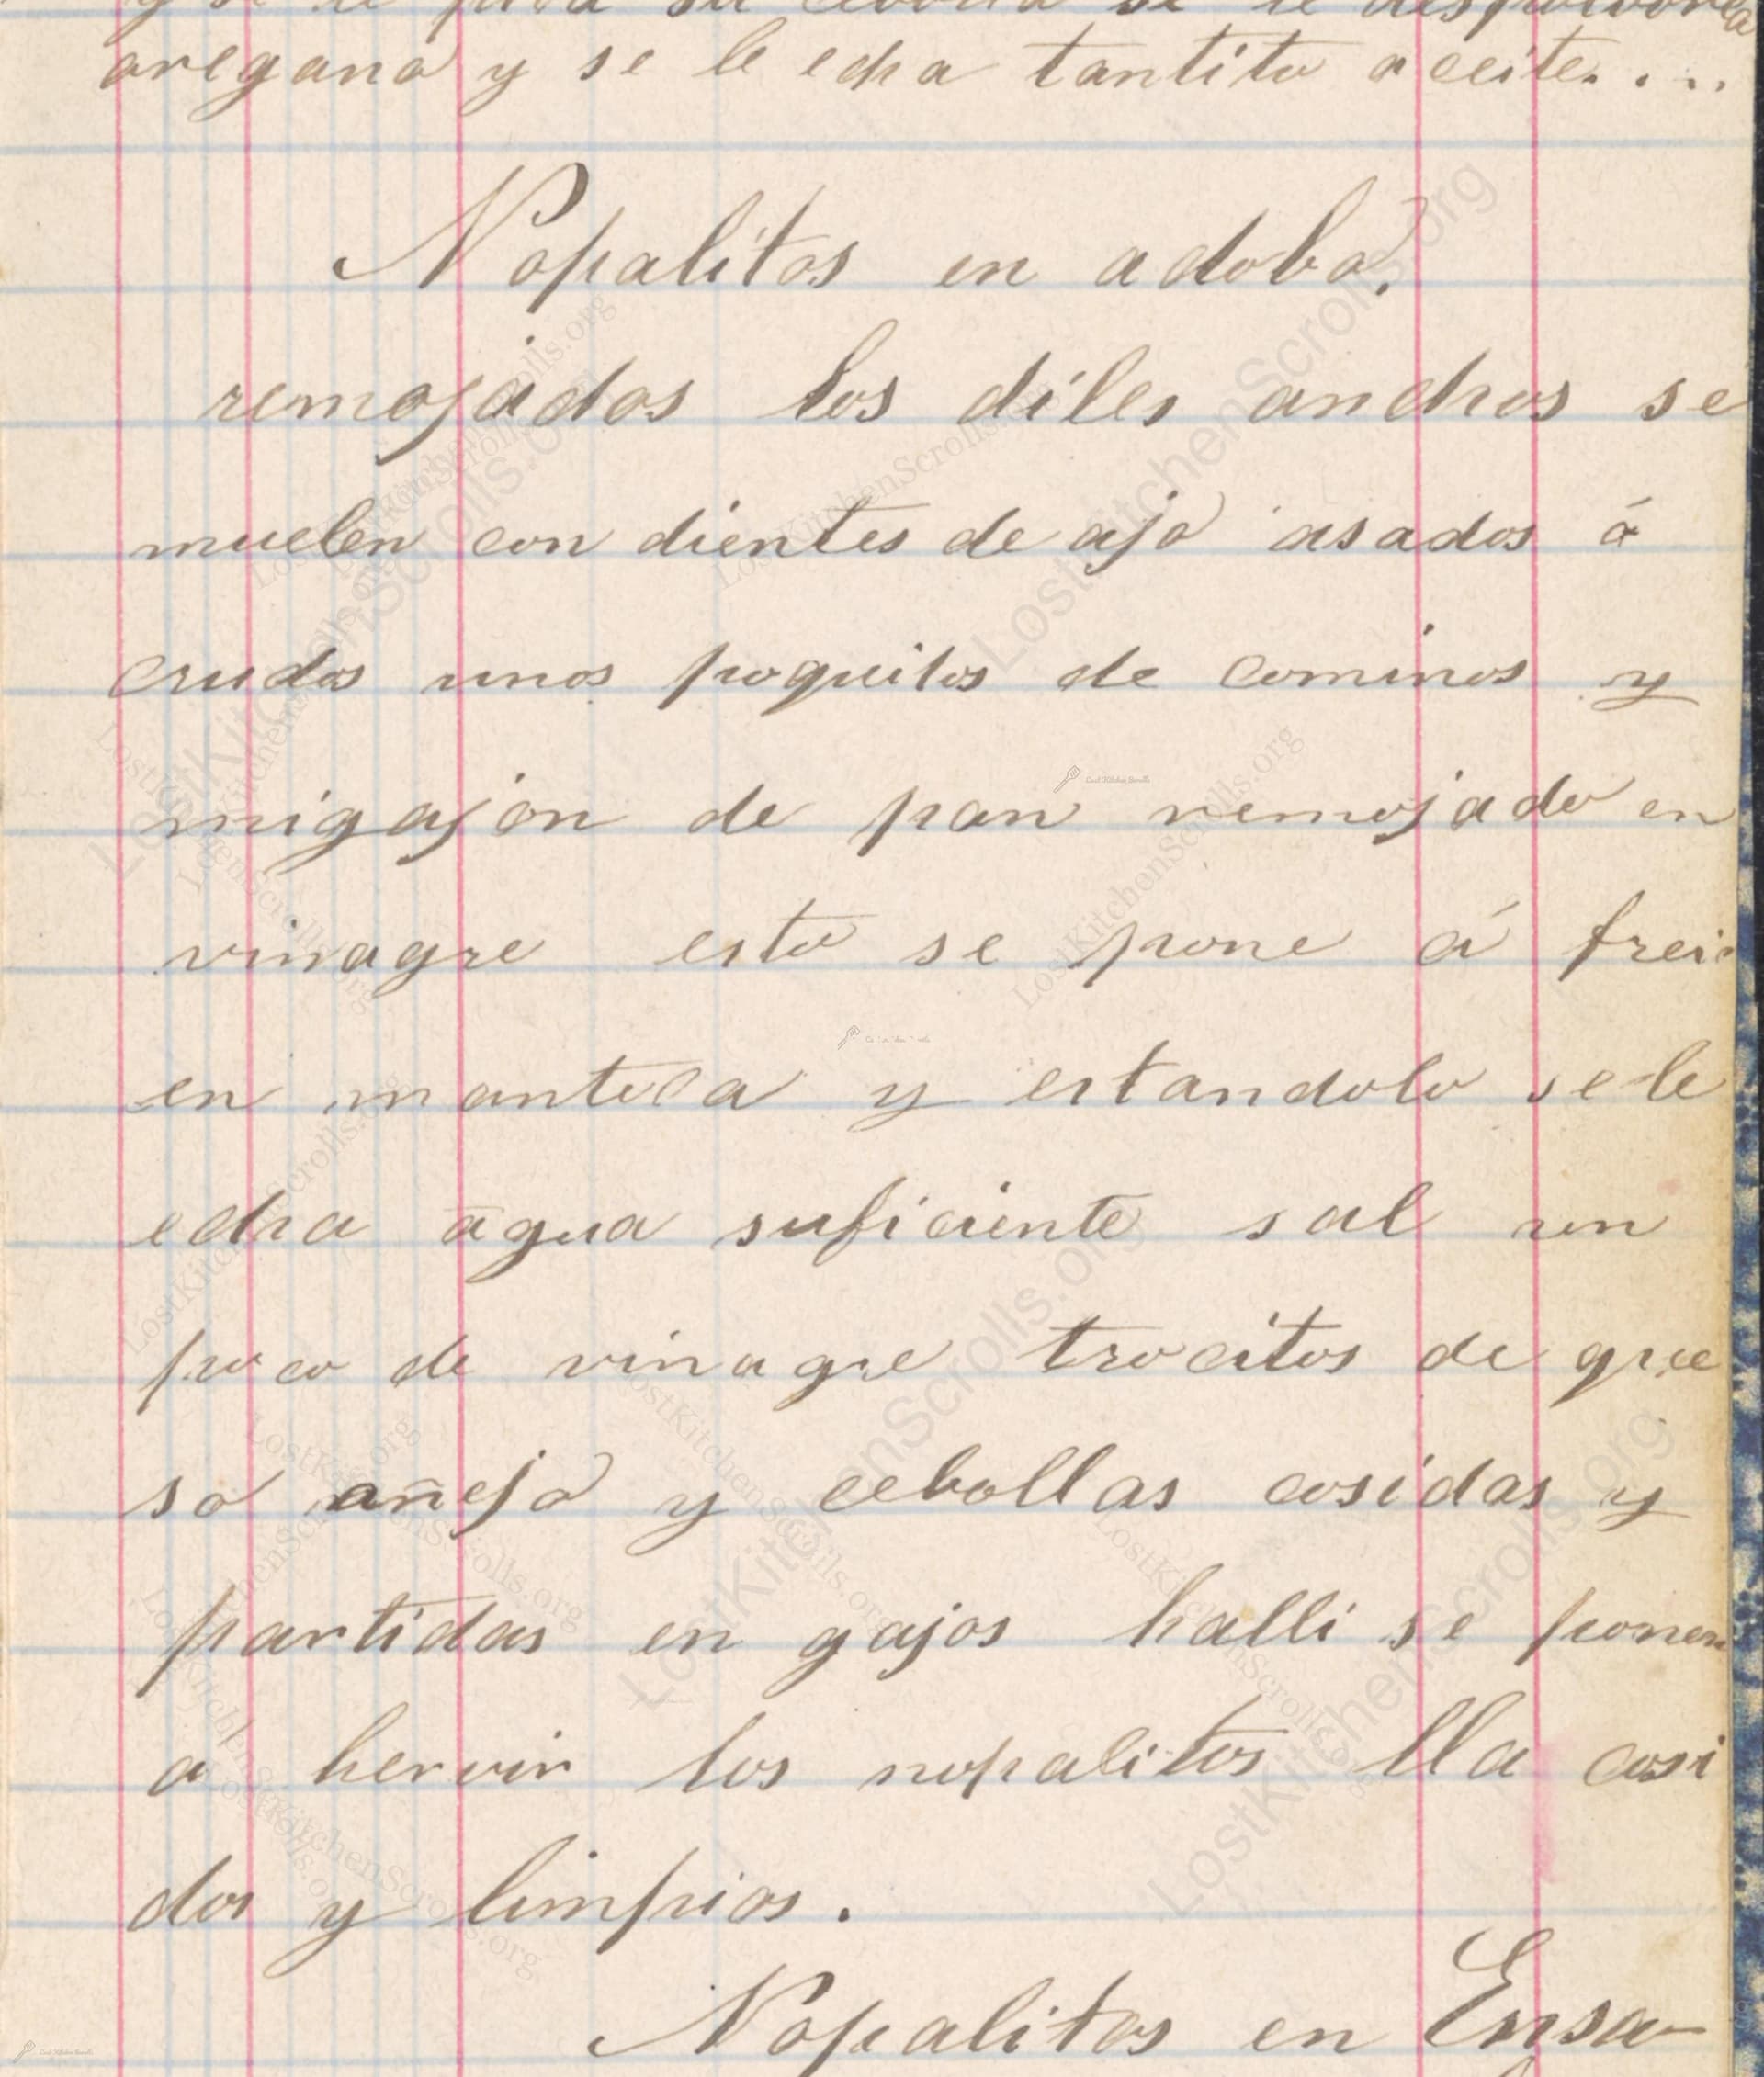 y se le pica su cebolla se le despolvorea
oregano y se le echa tantito aceite. . ..
Nopalitos en adobo.
remojados los chiles anchos se
muelen con dientes de ajo asados ó
crudos unos poquitos de cominos y
migajon de pan remojado en
vinagre esto se pone á freir
en manteca y estandolo se le
echa agua suficiente sal un
poco de vinagre trocitos de que
so añejo y cebollas cosidas y
partidas en gajos halli se ponen
a hervir los nopalitos lla cosi
dos y limpios.
Nopalitos en Ensa-